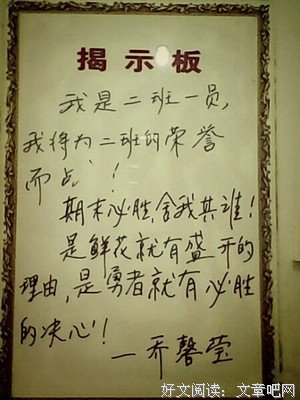 揭示板
我是二班一员,
我将为二班的荣誉
而占、!
期末必胜,舍我其谁!
是鲜花就有盛开的
理由,是勇者就有必胜
的决心!
—乔馨莹
好文阅读:文章吧网